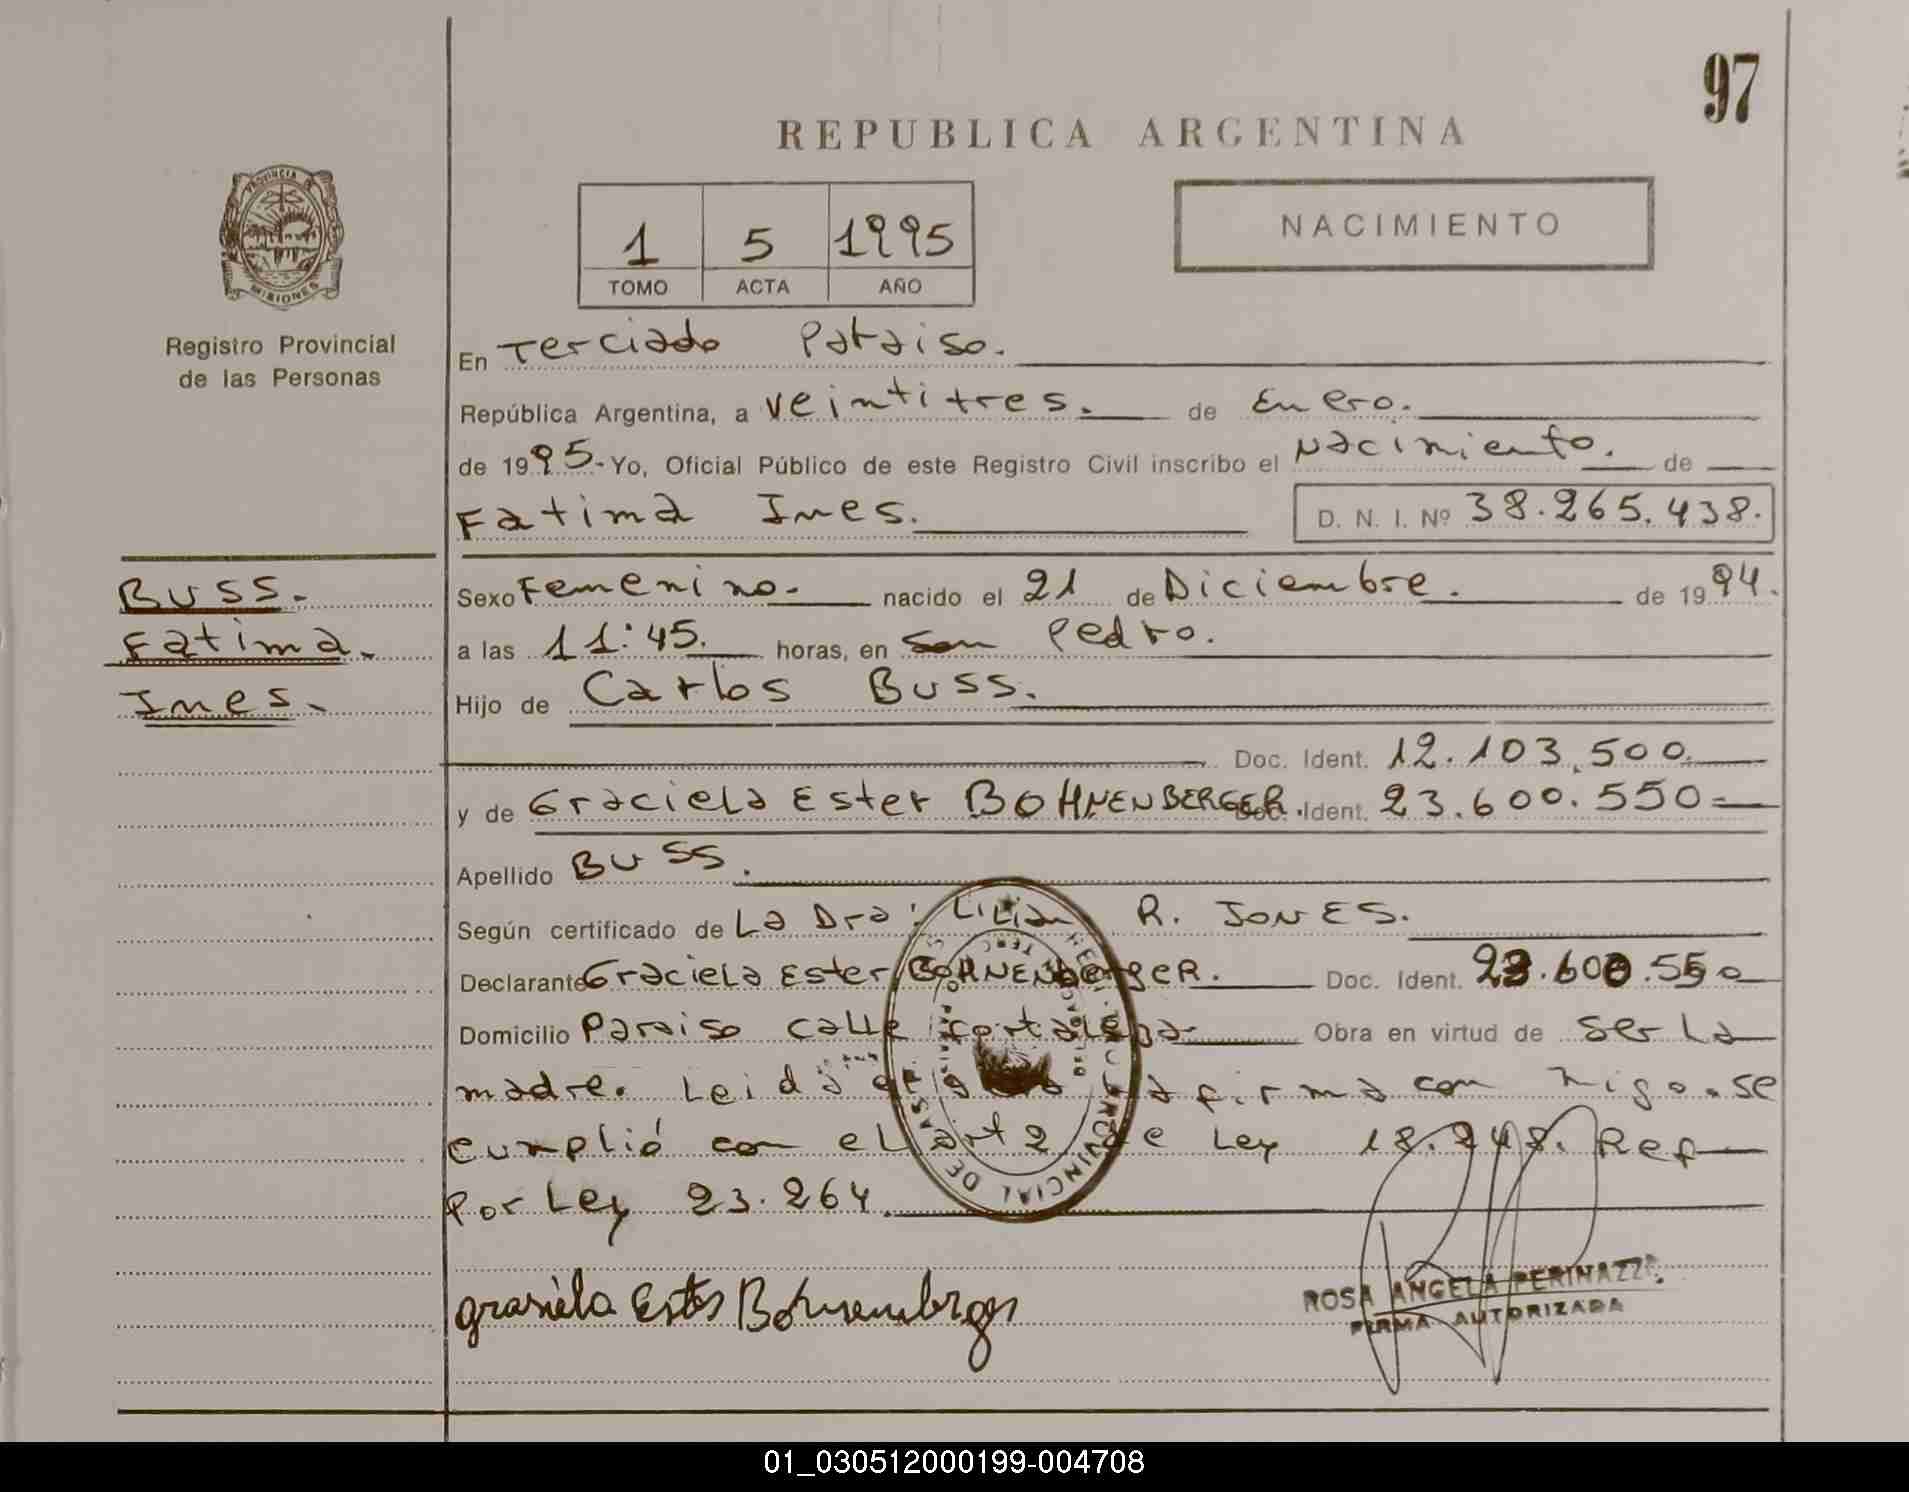 97
REPUBLICA ARGENTINA
PROVINCIA DE
MISIONES
Registro Provincial
de las Personas
1 5 1995
TOMO ACTA AÑO
NACIMIENTO
En Terciado Paraiso.
República Argentina, a veintitres. de Enero.
de 1995-Yo, Oficial Público de este Registro Civil inscribo el Nacimiento. de
Fatima Ines. D. N. I. Nº 38.265.438.
BUSS.
Fatima.
Ines.
Sexo Femenino. nacido el 21 de Diciembre. de 1994.
a las 11:45. horas, en San Pedro.
Hijo de Carlos Buss.
Doc. Ident. 12.103.500
y de Graciela Ester BOHNENBERGER. Doc. Ident. 23.600.550
Apellido BUSS.
Según certificado de La Dra: Lilian R. JONES.
Declarante Graciela Ester BOHNENbergeR. Doc. Ident. 23.600.550
Domicilio Paraiso calle fortaleza Obra en virtud de ser La
madre. Leida el acta la firma con migo. se
cumplió con el Art 2 de Ley 18.248. Ref
Por Ley 23.264.
grasiela Ester Bohnenberger
ROSA ANGELA PERINAZZO
FIRMA AUTORIZADA
01_030512000199-004708